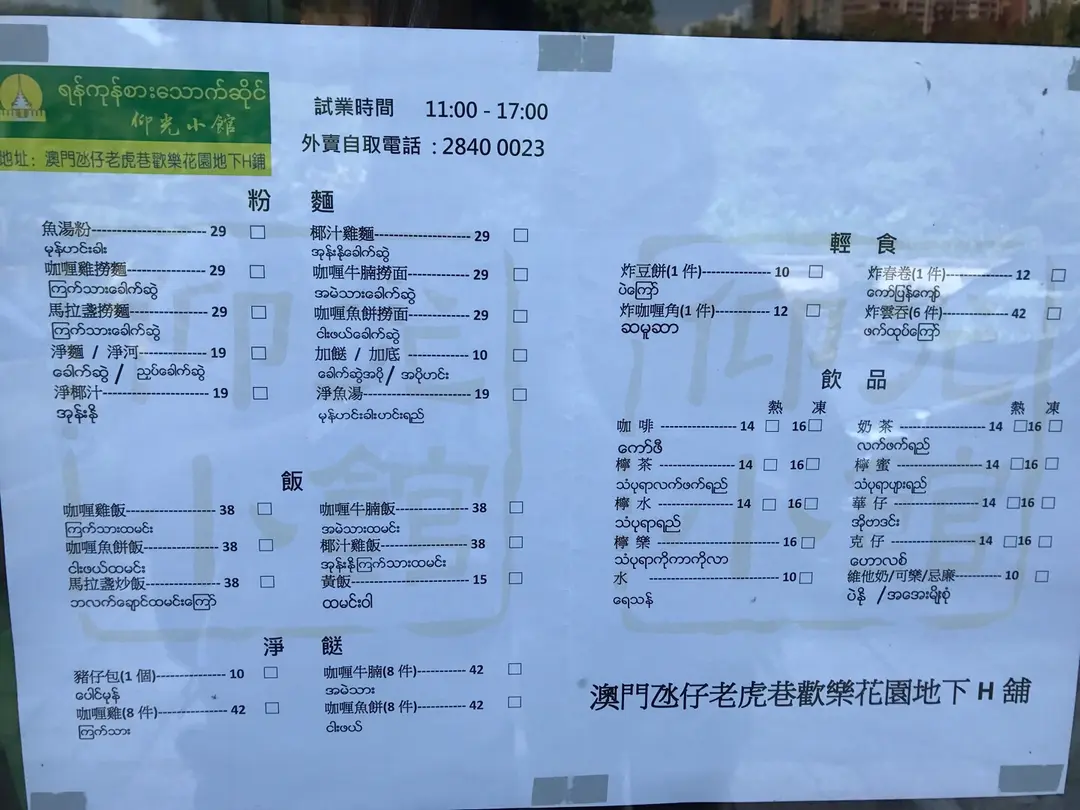 ရန်ကုန်စားသောက်ဆိုင်
仰光小館
地址：澳門氹仔老虎巷歡樂花園地下H鋪
試業時間 11:00 - 17:00
外賣自取電話 : 2840 0023
粉 麵
魚湯粉 29
မုန့်ဟင်းခါး
咖喱雞撈麵 29
ကြက်သားခေါက်ဆွဲ
馬拉盞撈麵 29
ကြက်သားခေါက်ဆွဲ
淨麵 / 淨河 19
ခေါက်ဆွဲ / ညှပ်ခေါက်ဆွဲ
淨椰汁 19
အုန်းနို့
椰汁雞麵 29
အုန်းနို့ခေါက်ဆွဲ
咖喱牛腩撈面 29
အမဲသားခေါက်ဆွဲ
咖喱魚餅撈面 29
ငါးဖယ်ခေါက်ဆွဲ
加餸 / 加底 10
ခေါက်ဆွဲအပို / အပိုဟင်း
淨魚湯 19
မုန့်ဟင်းခါးဟင်းရည်
飯
咖喱雞飯 38
ကြက်သားထမင်း
咖喱魚餅飯 38
ငါးဖယ်ထမင်း
馬拉盞炒飯 38
ဘလက်ချောင်ထမင်းကြော်
咖喱牛腩飯 38
အမဲသားထမင်း
椰汁雞飯 38
အုန်းနို့ကြက်သားထမင်း
黃飯 15
ထမင်းဝါ
淨 餸
豬仔包(1 個) 10
ပေါင်မုန့်
咖喱雞(8 件) 42
ကြက်သား
咖喱牛腩(8 件) 42
အမဲသား
咖喱魚餅(8 件) 42
ငါးဖယ်
輕 食
炸豆餅(1 件) 10
ပဲကြော်
炸咖喱角(1 件) 12
ဆမူဆာ
炸春卷(1 件) 12
ကော်ပြန့်ကျော်
炸雲吞(6 件) 42
ဖက်ထုပ်ကြော်
飲 品
熱 凍
咖啡 14 16
ကော်ဖီ
檸茶 14 16
သံပုရာလက်ဖက်ရည်
檸水 14 16
သံပုရာရည်
檸樂 16
သံပုရာကိုကာကိုလာ
水 10
ရေသန့်
熱 凍
奶茶 14 16
လက်ဖက်ရည်
檸蜜 14 16
သံပုရာပျားရည်
華仔 14 16
အိုဗာဒင်း
克仔 14 16
ဟောလစ်
維他奶/可樂/忌廉 10
ပဲနို့ /အအေးမျိုးစုံ
澳門氹仔老虎巷歡樂花園地下 H 鋪
仰光
小館
仰光
小館